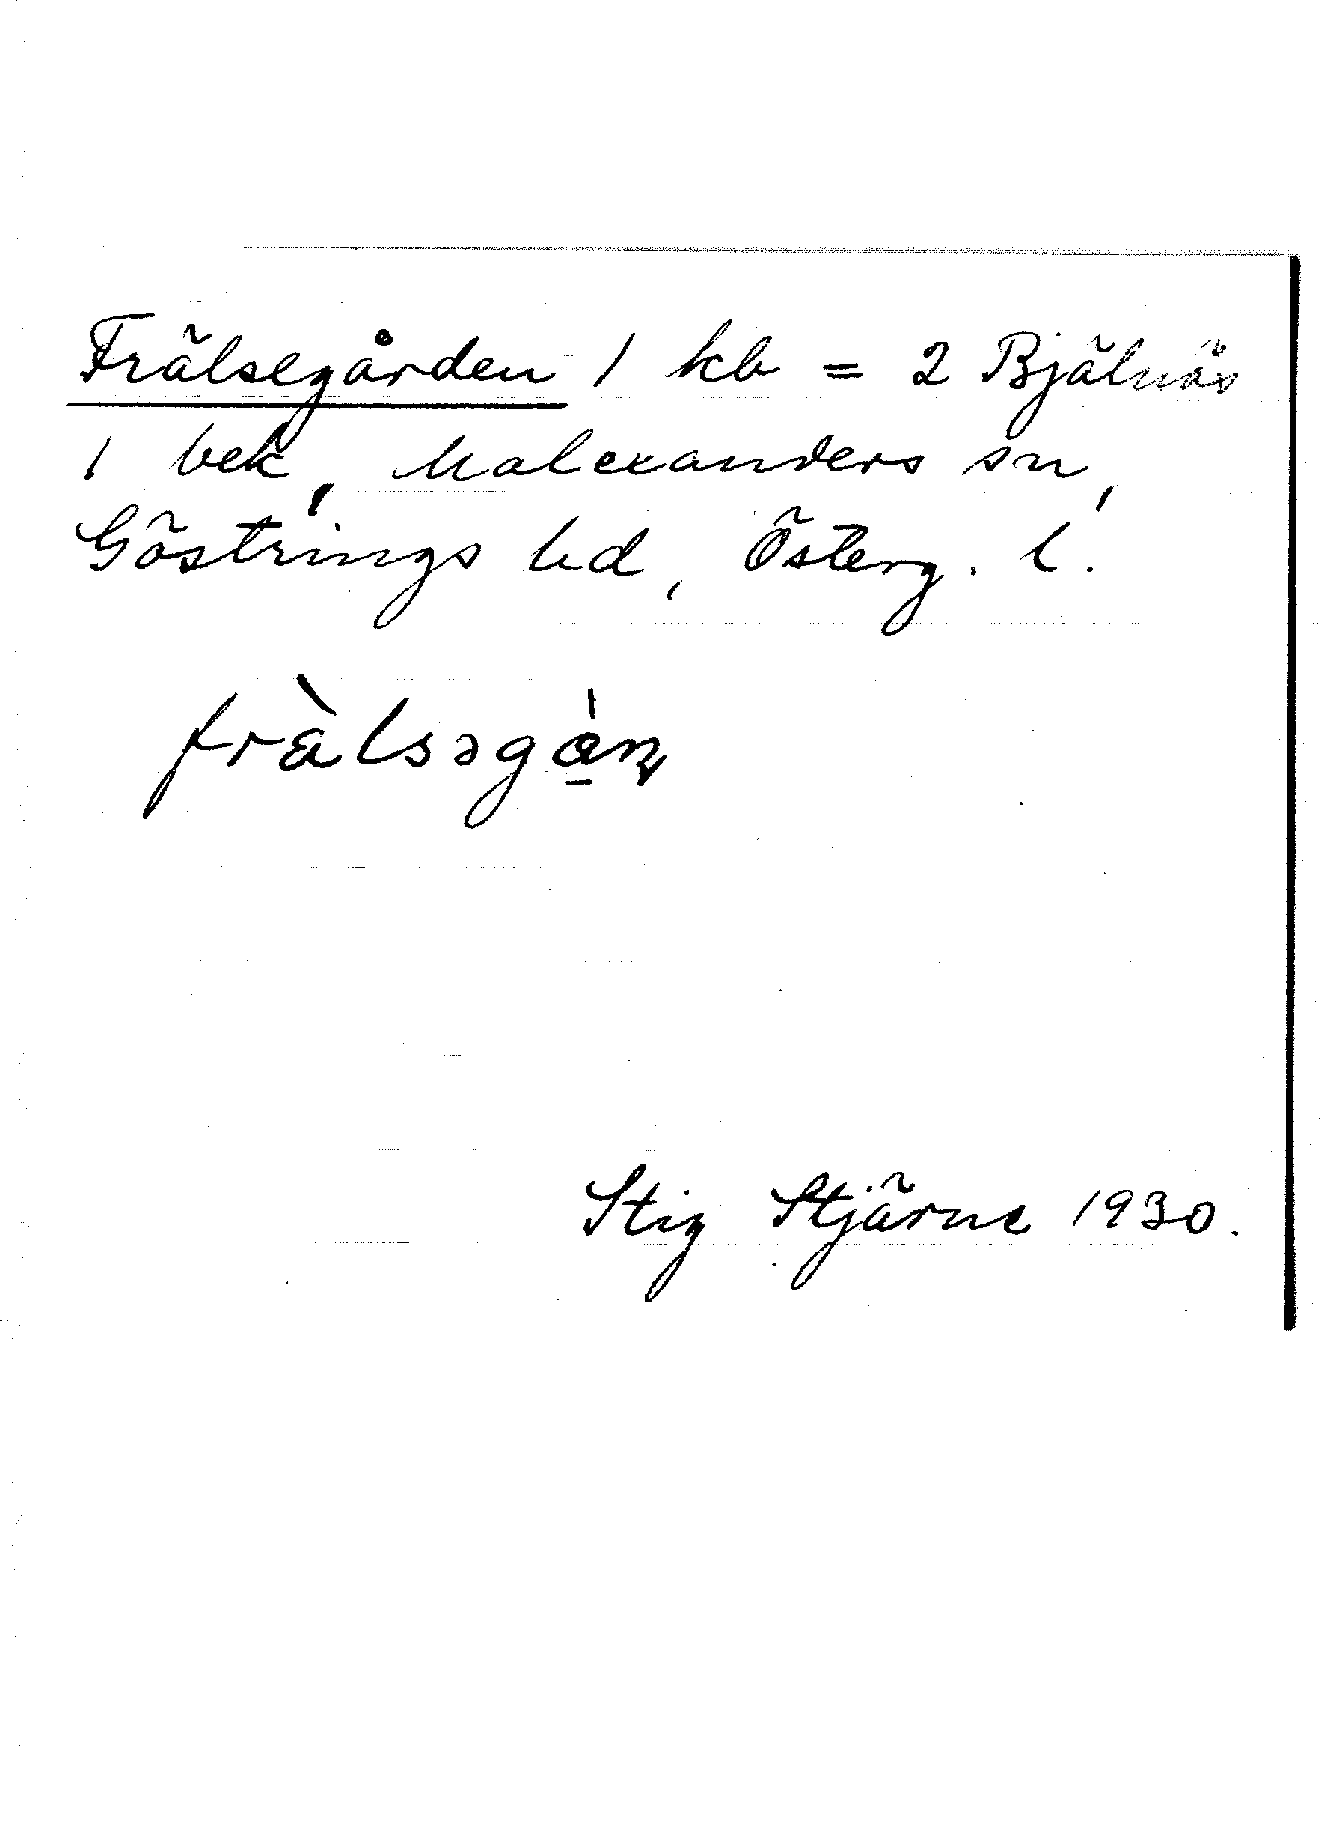 Frälsegården 1 kb = 2 Bjälnäs
1 bek, Malexanders sn,
Göstrings hd, Österg. l.
frɛ̀lsəgo̠̍ɳ
Stig Stjärne 1930.